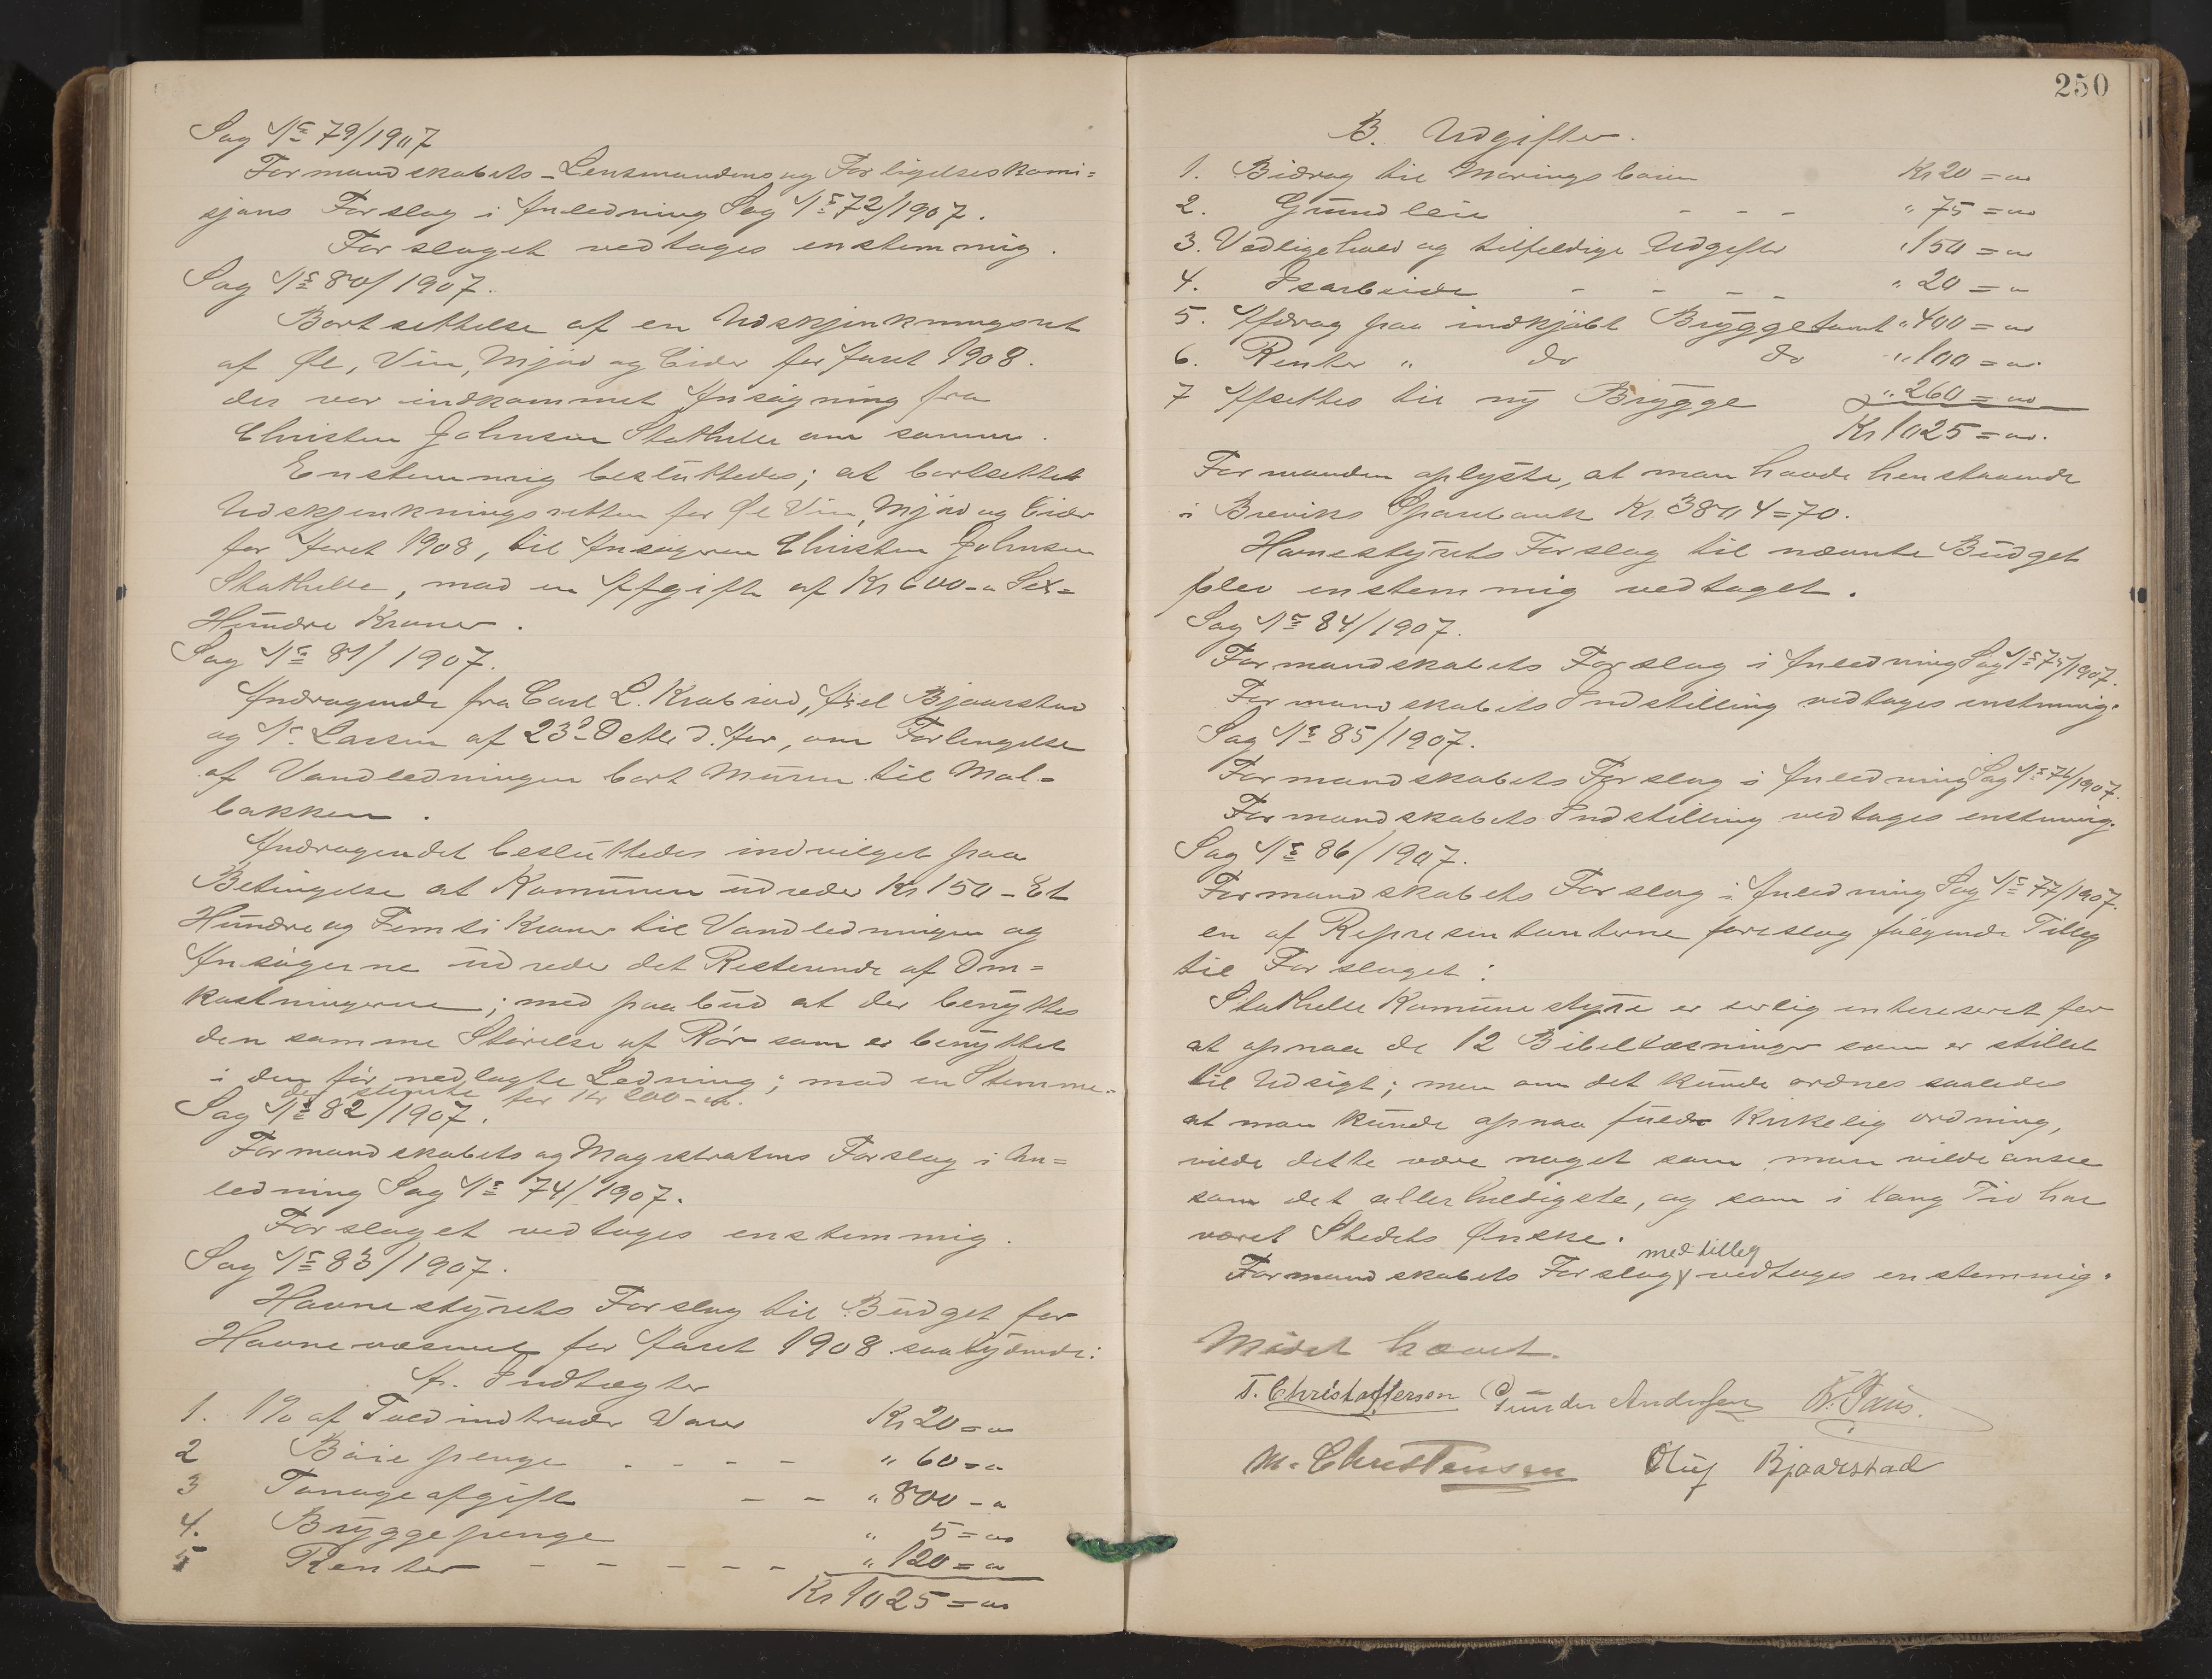 Sag No 79/1907
Formandskabets-Lensmandens og Forligelseskomi=
sjons Forslag i Anledning Sag No 72/1907.
Forslaget vedtages enstemmig.
Sag No 80/1907.
Bortsettelse af en Udskjenkningsret
af Øl, Vin, Mjød og Cider for Aaret 1908.
der var indkommet Ansøgning fra
Christen Johnsen Stathelle om samme.
Enstemmig besluttedes; at bortsettet
Udskjenkningsretten for Øl Vin, Mjød og Cider
for Aaret 1908, til Ansøgeren Christen Johnsen
Stathelle, mod en Afgift af Kr 600 - Sex=
Hundre Kroner.
Sag No 81/1907.
Andragende fra Carl L. Krabsud, Axel Bjaarstad
og N. Larsen af 23d Dette d. Aar, om Forlengelse
af Vandledningen bort Muren til Mal=
bakken.
Andragendet besluttedes indvilget paa
Betingelse at Komunen udreder Kr 150 - Et
Hundre og Femti Kroner til Vandledningen og
Ansøgerne udreder det Resterende af Om=
kostningerne; med paabud at der benyttes
den samme Størelse af Rør som er benyttet
i den før nedlagte Ledning; mod en Stemme.
der stemte for Kr 200
Sag No 82/1907.
Formandskabets og Magistratens Forslag i An=
ledning Sag No 74/1907.
Forslaget vedtages enstemmig.
Sag No 83/1907.
Havnestyrets Forslag til Budget for
Havnevæsenet for Aaret 1908 saalydende:
A. Indtægter
1. 1% af Told indtrader Varer Kr 20 = 00
2 Bøiepenge - - - - " 60 = 00
3 Tonageafgift - - " 800 - 00
4. Bryggepenge " 5 = 00
5 Renter - - - - - " 120 = 00
Kr 1025 = 00
250
B. Udgifter.
1. Bidrag til Mørings bøien Kr 20 = 00
2. Grundleie - - - " 75 = 00
3. Vedligehold og tilfeldige Udgifter " 150 = 00
4. Isarbeide - - - - " 20 = 00
5. Afdrag paa indkjøbt Bryggetomt " 400 = 00
6. Renter " do do " 100 = 00.
7 Afsettes til ny Brygge " 260 = 00
Kr 1025 = 00.
Formanden oplyste, at man havde henstaaende
i Breviks Sparebank Kr. 3804=70.
Havnestyrets Forslag til nævnte Budget
blev enstemmig vedtaget.
Sag No 84/1907.
Formandskabets Forslag i Anledning Sag No 75/1907.
Formandskabets Indstilling vedtages enstemmig.
Sag No 85/1907.
Formandskabets Forslag i Anledning Sag No 76/1907.
Formandskabets Indstilling vedtages enstemmig.
Sag No 86/1907.
Formandskabets Forslag i Anledning Sag No 77/1907.
en af Representanterne foreslog følgende Tilleg
til Forslaget:
Stathelle Komunestyre er serlig intereseret for
at opnaa de 12 Bibellæsninger som er stillet
til Udsigt; men om det kunde ordnes saaledes
at man kunde opnaa fuld Kirkelig ordning,
vilde dette være noget som man vilde ansee
som det aller heldigste, og som i lang Tid har
været Stedets Ønske.
med tilleg
Formandskabets Forslag vedtages enstemmig.
Mødet hævet.
T. Christoffersen Gunder Andersen K. Paus.
M. Christensen Oluf Bjaarstad